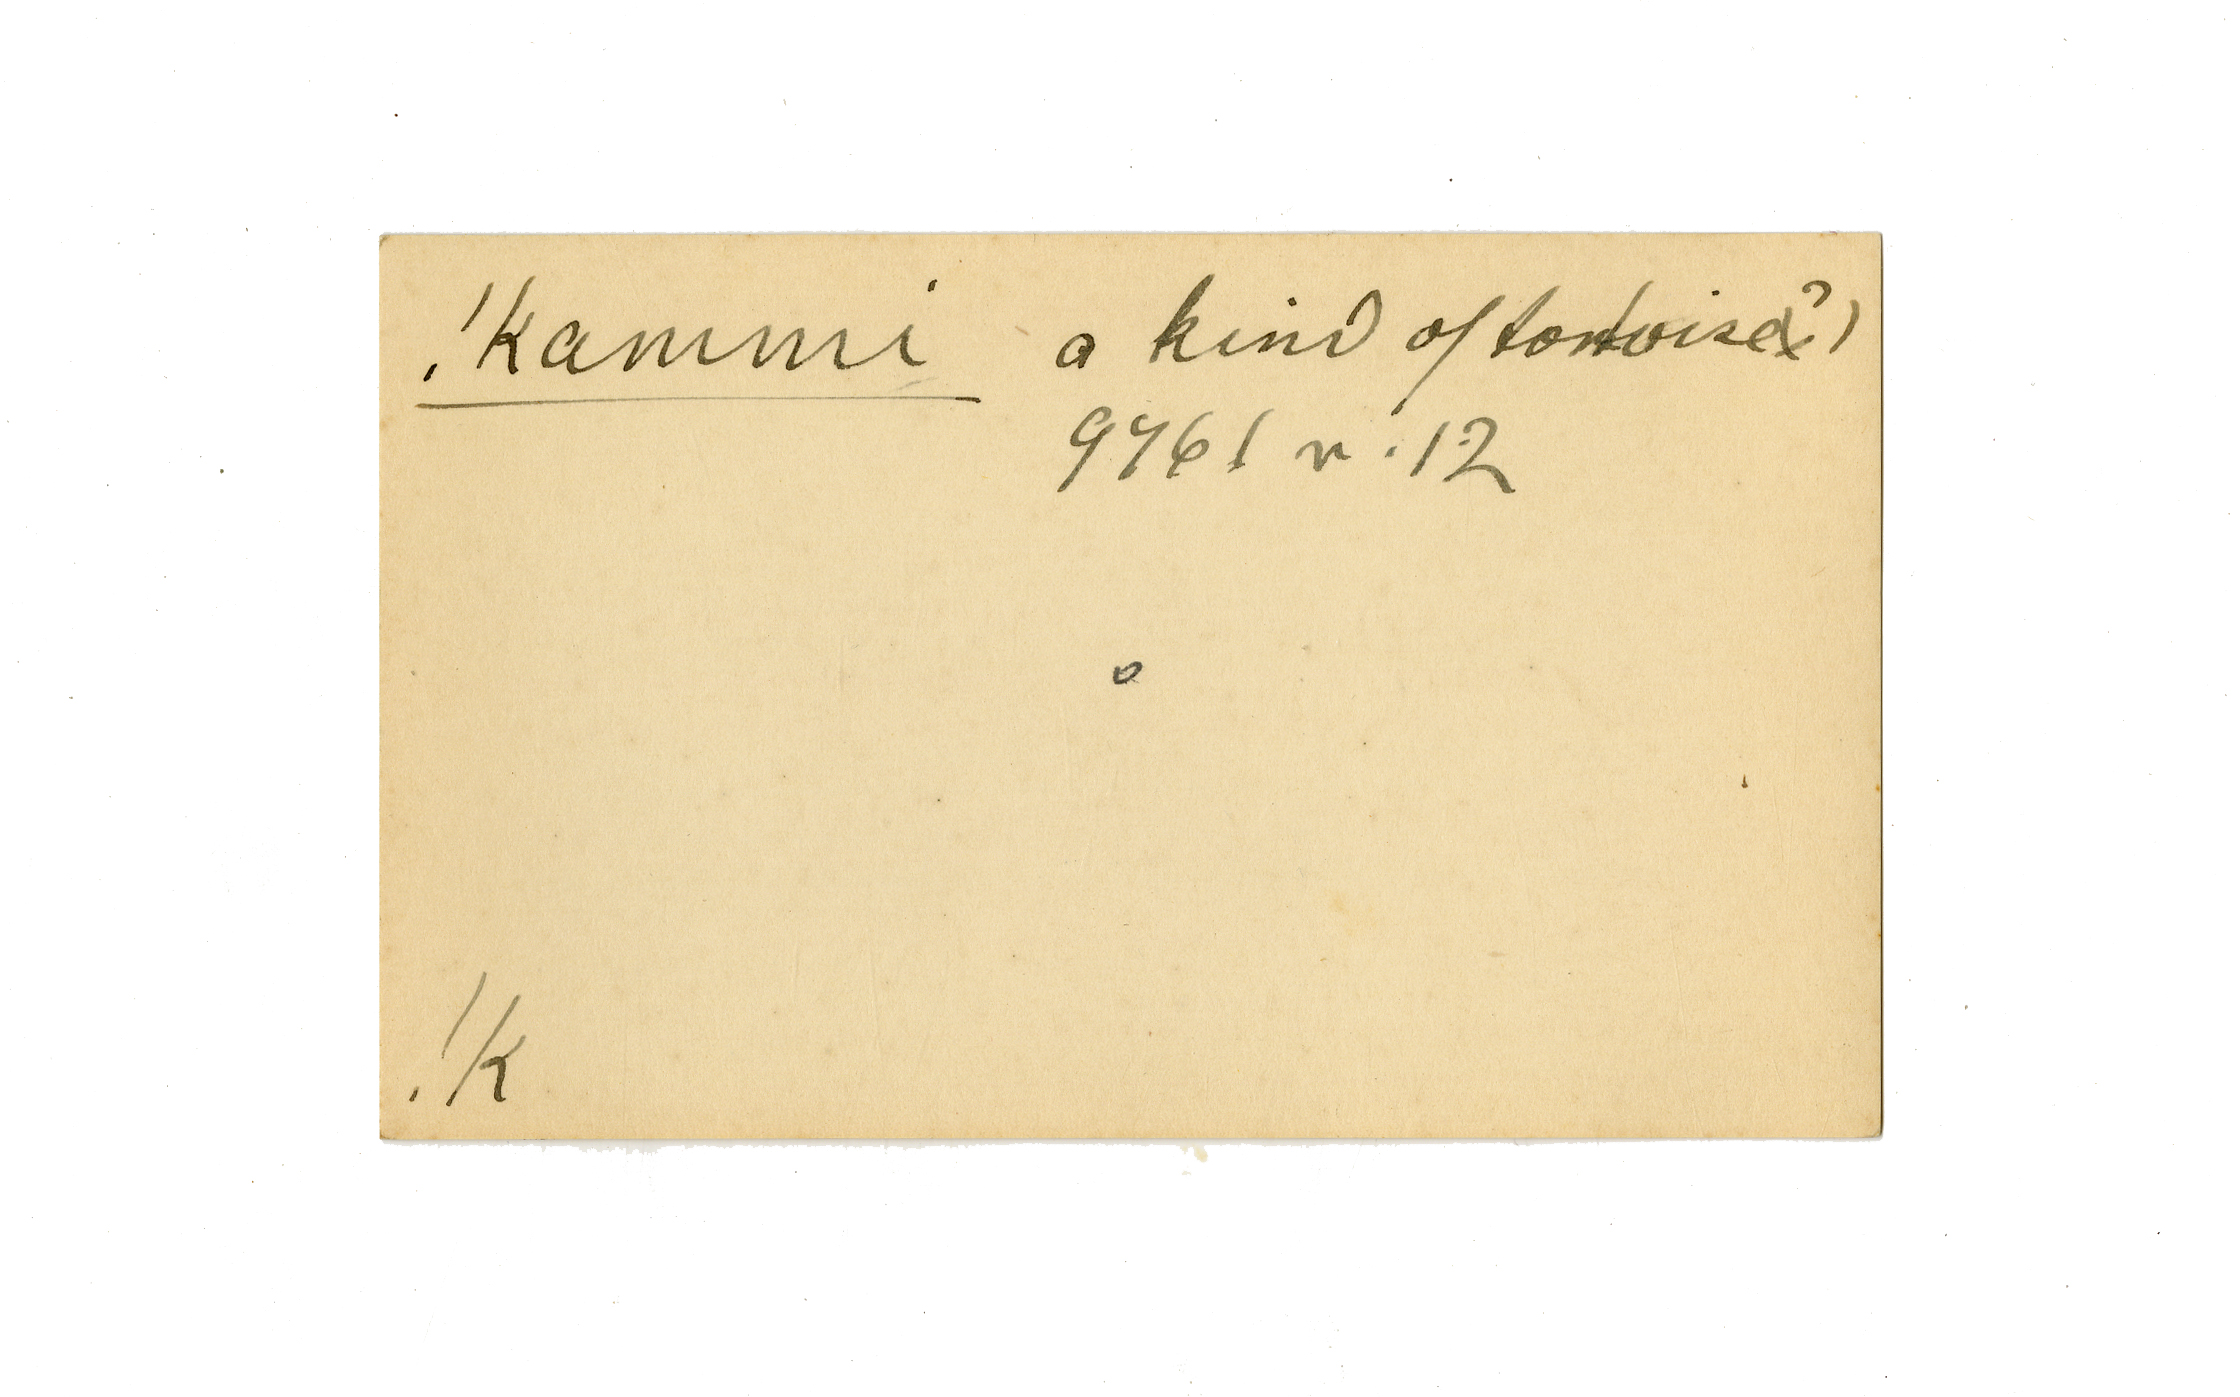 !kammi a kind of tortoise(?)
9761 r. 12
!k